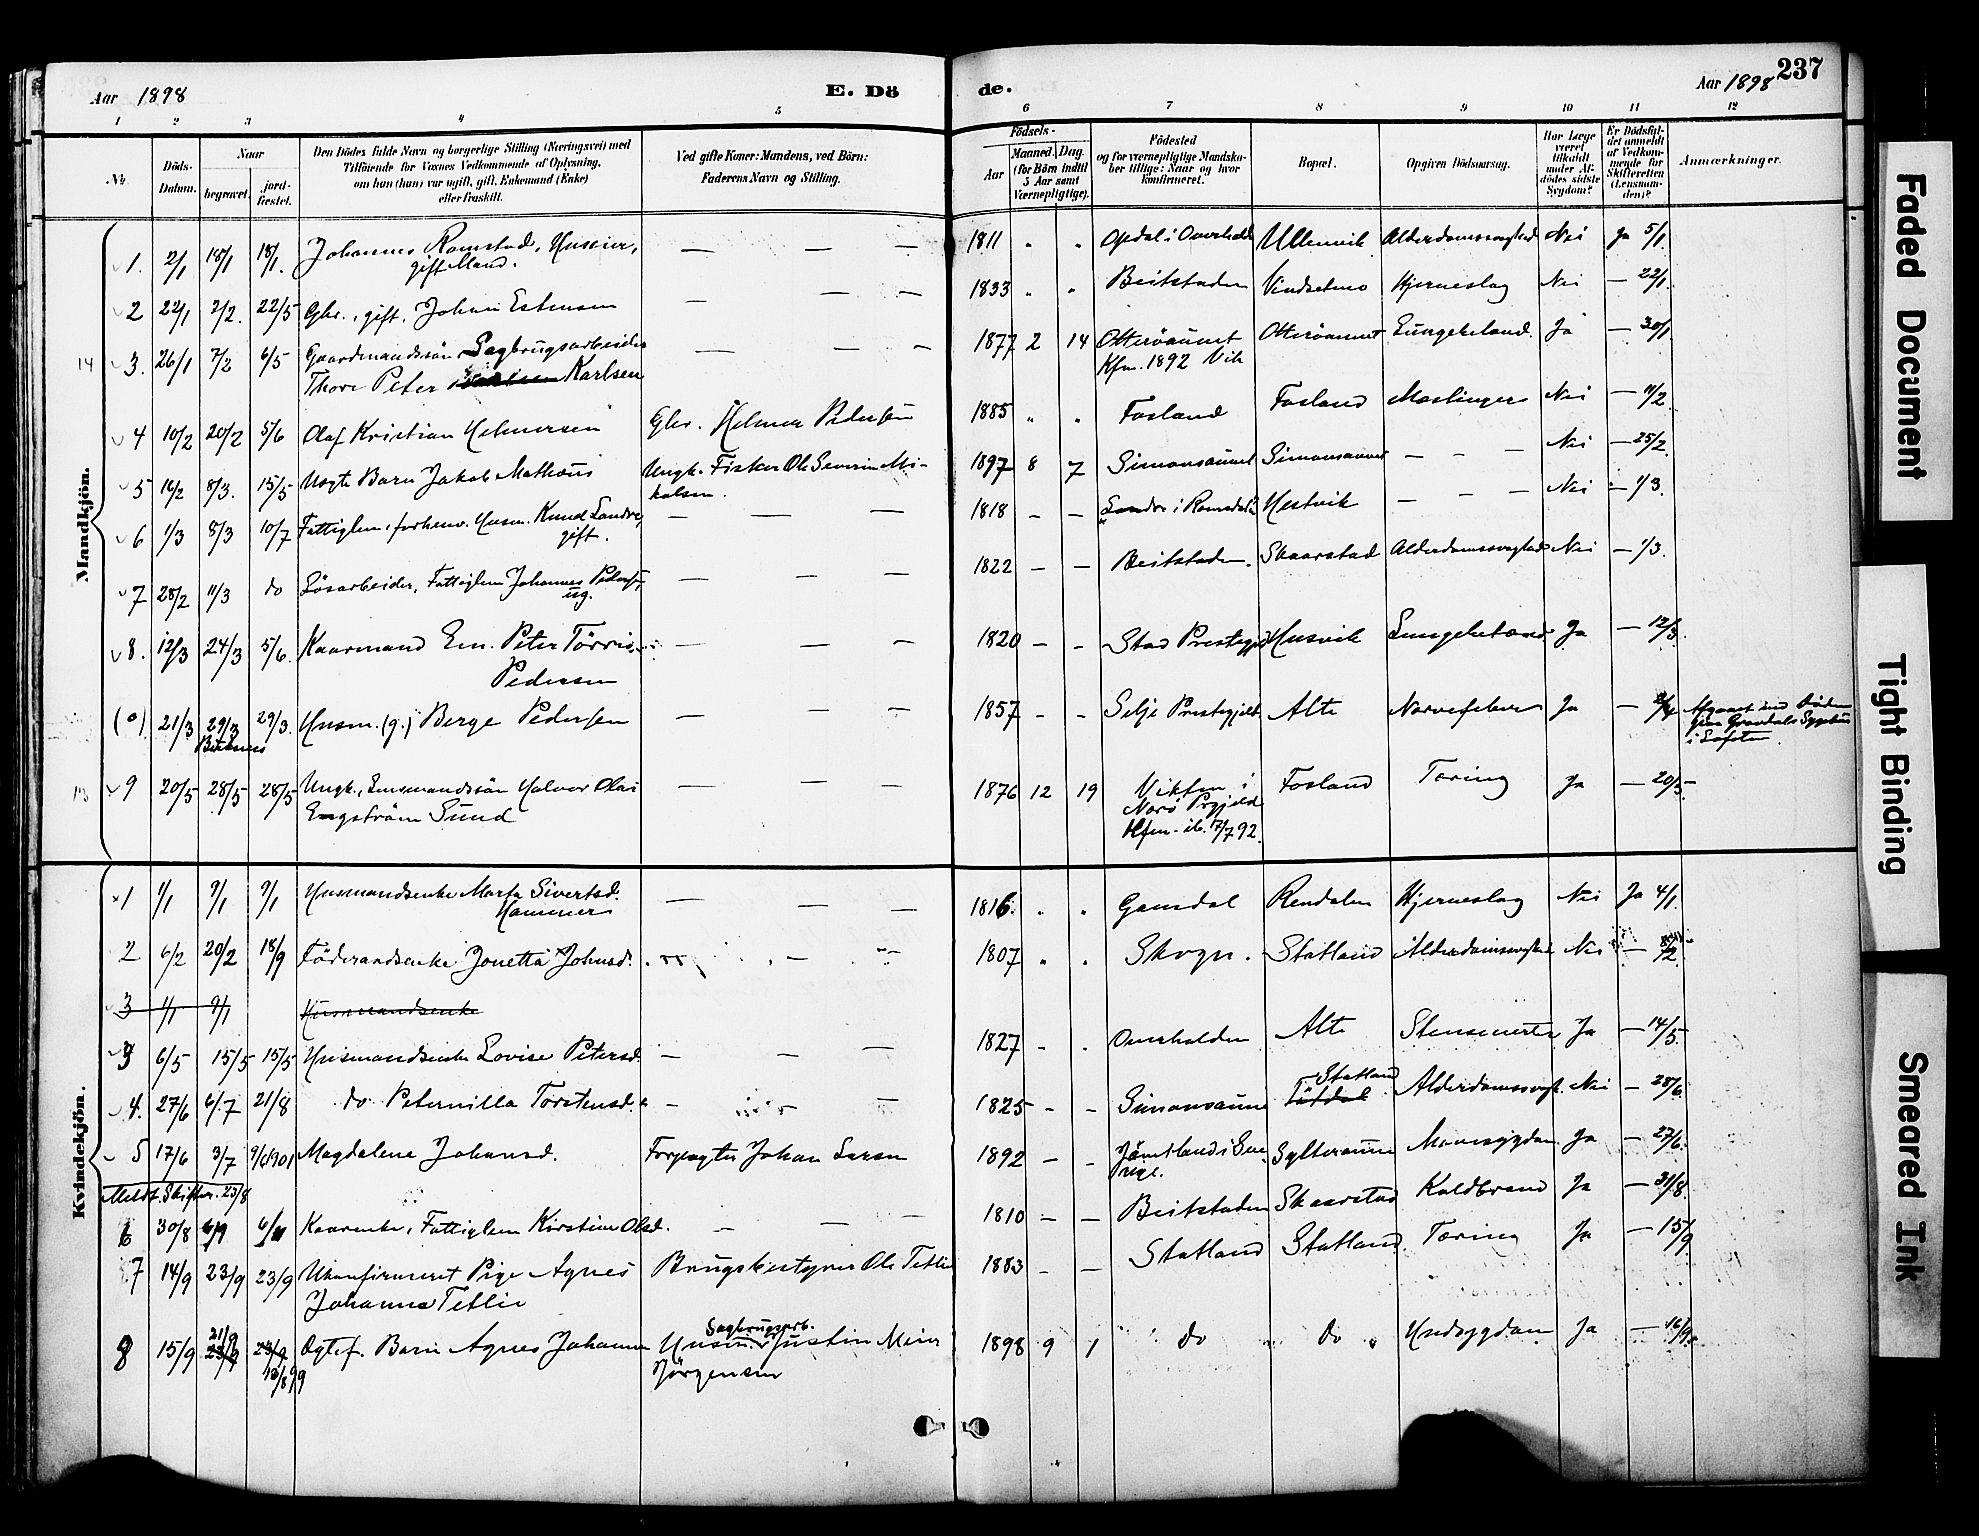 Aar 1898
E. Dö
de.
Aar 1898
237
1 2 3 4 5 6 7 8 9 10 11 12
No.
Döds-Datum.
Naar
begravet.
jord-fæstet.
Den Dödes fulde Navn og borgerlige Stilling (Næringsvei) med
Tilföiende for Voxnes Vedkommende af Oplysning,
om han (hun) var ugift, gift, Enkemand (Enke)
eller fraskilt.
Ved gifte Koner: Mandens, ved Börn:
Faderens Navn og Stilling.
Födsels-
Aar
Maaned. Dag.
(for Börn indtil
5 Aar samt
Værnepligtige).
Födested
og for værnepligtige Mandska-
ber tillige: Naar og hvor
konfirmeret.
Bopæl.
Opgiven Dödsaarsag.
Har Læge
været
tilkaldt
under Af-
dödes sidste
Sygdom?
Er Dödsfal-
det anmeldt
af Vedkom-
mende for
Skifteretten
(Lensman-
den)?
Anmærkninger.
Mandkjön.
1. 2/1 18/1 18/1. Johannes Ramstad, Huseier, gift Mand. — — — 1811 Opdal i Overhalla Ullenvik Alderdomssvaghed Nei Ja 5/1.
2 22/1 2/2. 22/5 Gbr., gift, Johan Estensen — — — 1833 Beitstaden Vindsetmo Hjerneslag Nei — 22/1.
14 3. 26/1 7/2 6/5 Gaardmandssön Sagbrugsarbeider — — — 1877 2 14 Otteröaunet Otteröaunet Lungebetænd. Ja — 30/1
Thore Peter Karlsen Kfm. 1892 Vik
4 10/2 20/2 5/6 Olaf Kristian Helmersen Gbr. Helmer Pedersen 1885 Fosland Fosland Mæslinger Nei — 11/2
5 16/2 8/3. 15/5 Uægte Barn Jakob Mathæus Ungk. Fisker Ole Severin Mi-
kalsen. 1897 8 7 Simonsaunet Simonsaunet — — — Nei — 25/2.
6 1/3 8/3 10/7 Fattiglem, forhenv. Husm. Knud Sandre, gift. — — — 1818 — — Sandre i Romsdalen Hestvik — — — Nei — 1/3.
7 28/2 11/3 do Lösarbeider, Fattiglem Johannes Peders., ug. — — — 1822 — — Beitstaden. Skaarstad Alderdomssvaghed Nei — 1/3.
8. 12/3 24/3 5/6. Kaarmand Em. Peter Törris — — — 1820 — — Stod Prestegjeld Husvik Lungebetænd. Ja — 12/3.
Pedersen
(o) 21/3 29/3 29/3. Husm. (g.) Berge Pedersen — — — 1857 — — Selje Prestegjeld Alte Nervefeber Ja — Afgaaet ved Döden
Gravdals Sygehus
i Lofoten.
13 9 20/5 28/5 28/5 Ungk., Lensmandssön Halvor Olai — — — 1876 12 19 Vikten i Fosland Tæring Ja — 20/5.
Engström Sund Nærö Prgjeld
Kfm. ib. 17/7 92.
Kvindekjön.
1 1/1 9/1 9/1 Husmandsenke Marta Sivertsd. — — — 1816. Gansdal Rendalen Hjerneslag Nei Ja 4/1.
Hammer
2 6/2 20/2 18/9 Föderaadsenke Jonetta Johnsd. — — 1807 Skogn. Statland Alderdomssvaghed Nei — 8/2.
3 1/1 9/1 Husmandsenke
3 6/5 15/5 15/5 Husmandsenke Lovise Petersd. — — — 1827 — Overhalden Alte Ja — 14/5.
4. 27/6 6/7 21/8 do Pernilla Torstensd. — — — 1825 — — Simonsaune Statland Alderdomssvagh. Nei — 28/6.
5 17/6 3/7 9/6 1901 Magdalena Johansd. Forpagter Johan Larsen 1892 — — Jämtland i Sve-
rige. Sylteraune Mavesygdom Ja — 27/6.
Meldt. Skifter. 23/8
6 30/8 6/9 Kaarenke, Fattiglem Kirstine Olsd. — — — 1810 — — Beitstaden Skaarstad Koldbrand Ja — 31/8.
7 14/9 23/9 23/9 Ukonfirmeret Pige Agnes Brugsbestyrer Ole Tetlie 1883 — — Statland Statland Tæring Ja — 15/9.
Johanna Tetlie
8 15/9 21/9 23/9 23/9 13/8 99 Ægtef. Barn Agnes Johanne Sagbrugsarb.
Husm. Justin Meier
Jörgensen 1898 9 1 do do Undsygdom Ja — 16/9.
Faded Document
Tight Binding
Smeared Ink